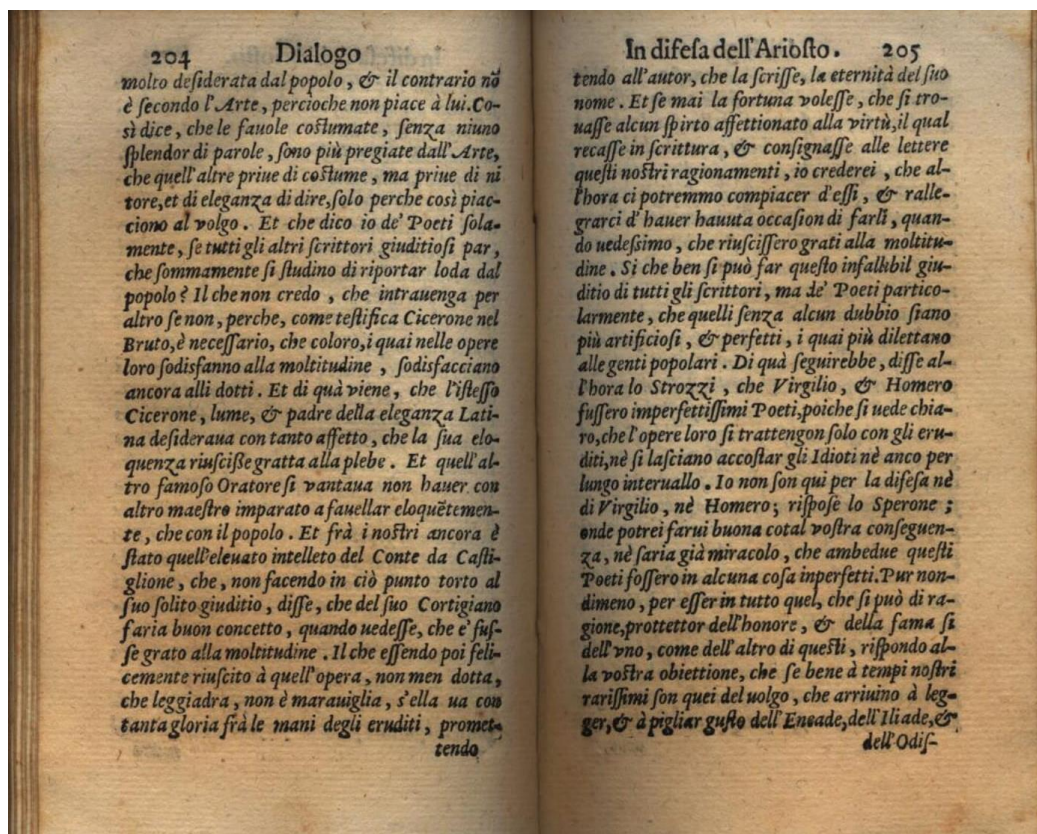 204 Dialogo
molto desiderata dal popolo, & il contrario nõ
è secondo l'Arte, percioche non piace à lui. Co-
sì dice, che le fauole costumate, senza niuno
splendor di parole, sono più pregiate dall'Arte,
che quell'altre priue di costume, ma priue di ni
tore, et di eleganza di dire, solo perche così piac-
ciono al volgo. Et che dico io de' Poeti sola-
mente, se tutti gli altri scrittori giuditiosi par,
che sommamente si studino di riportar loda dal
popolo? Il che non credo, che intrauenga per
altro se non, perche, come testifica Cicerone nel
Bruto, è necessario, che coloro, i quai nelle opere
loro sodisfanno alla moltitudine, sodisfacciano
ancora alli dotti. Et di quà viene, che l'istesso
Cicerone, lume, & padre della eleganza Lati-
na desideraua con tanto affetto, che la sua elo-
quenza riuscisse gratta alla plebe. Et quell'al-
tro famoso Oratore si vantaua non hauer con
altro maestro imparato a fauellar eloquẽtemen-
te, che con il popolo. Et frà i nostri ancora è
stato quell'eleuato intelleto del Conte da Casti-
glione, che, non facendo in ciò punto torto al
suo solito giuditio, disse, che del suo Cortigiano
faria buon concetto, quando uedesse, che e' fus-
se grato alla moltitudine. Il che essendo poi feli-
cemente riuscito à quell'opera, non men dotta,
che leggiadra, non è marauiglia, s'ella ua con
tanta gloria frà le mani degli eruditi, promet-
tendo
In difesa dell'Ariosto. 205
tendo all'autor, che la scrisse, la eternità del suo
nome. Et se mai la fortuna volesse, che si tro-
uasse alcun spirto affettionato alla virtù, il qual
recasse in scrittura, & consignasse alle lettere
questi nostri ragionamenti, io crederei, che al-
l'hora ci potremmo compiacer d'essi, & ralle-
grarci d'hauer hauuta occasion di farli, quan-
do uedessimo, che riuscissero grati alla moltitu-
dine. Si che ben si può far questo infallibil giu-
ditio di tutti gli scrittori, ma de' Poeti partico-
larmente, che quelli senza alcun dubbio siano
più artificiosi, & perfetti, i quai più dilettano
alle genti popolari. Di quà seguirebbe, disse al-
l'hora lo Strozzi, che Virgilio, & Homero
fussero imperfettissimi Poeti, poiche si uede chia-
ro, che l'opere loro si trattengon solo con gli eru-
diti, nè si lasciano accostar gli Idioti nè anco per
lungo interuallo. Io non son qui per la difesa nè
di Virgilio, nè Homero; rispose lo Sperone;
onde potrei farui buona cotal vostra conseguen-
za, nè saria già miracolo, che ambedue questi
Poeti fossero in alcuna cosa inperfetti. Pur non-
dimeno, per esser in tutto quel, che si può di ra-
gione, prottettor dell'honore, & della fama si
dell'vno, come dell'altro di questi, rispondo al-
la vostra obiettione, che se bene à tempi nostri
rarissimi son quei del uolgo, che arriuino à leg-
ger, & à pigliar gusto dell'Eneade, dell'Iliade, &
dell'Odis-